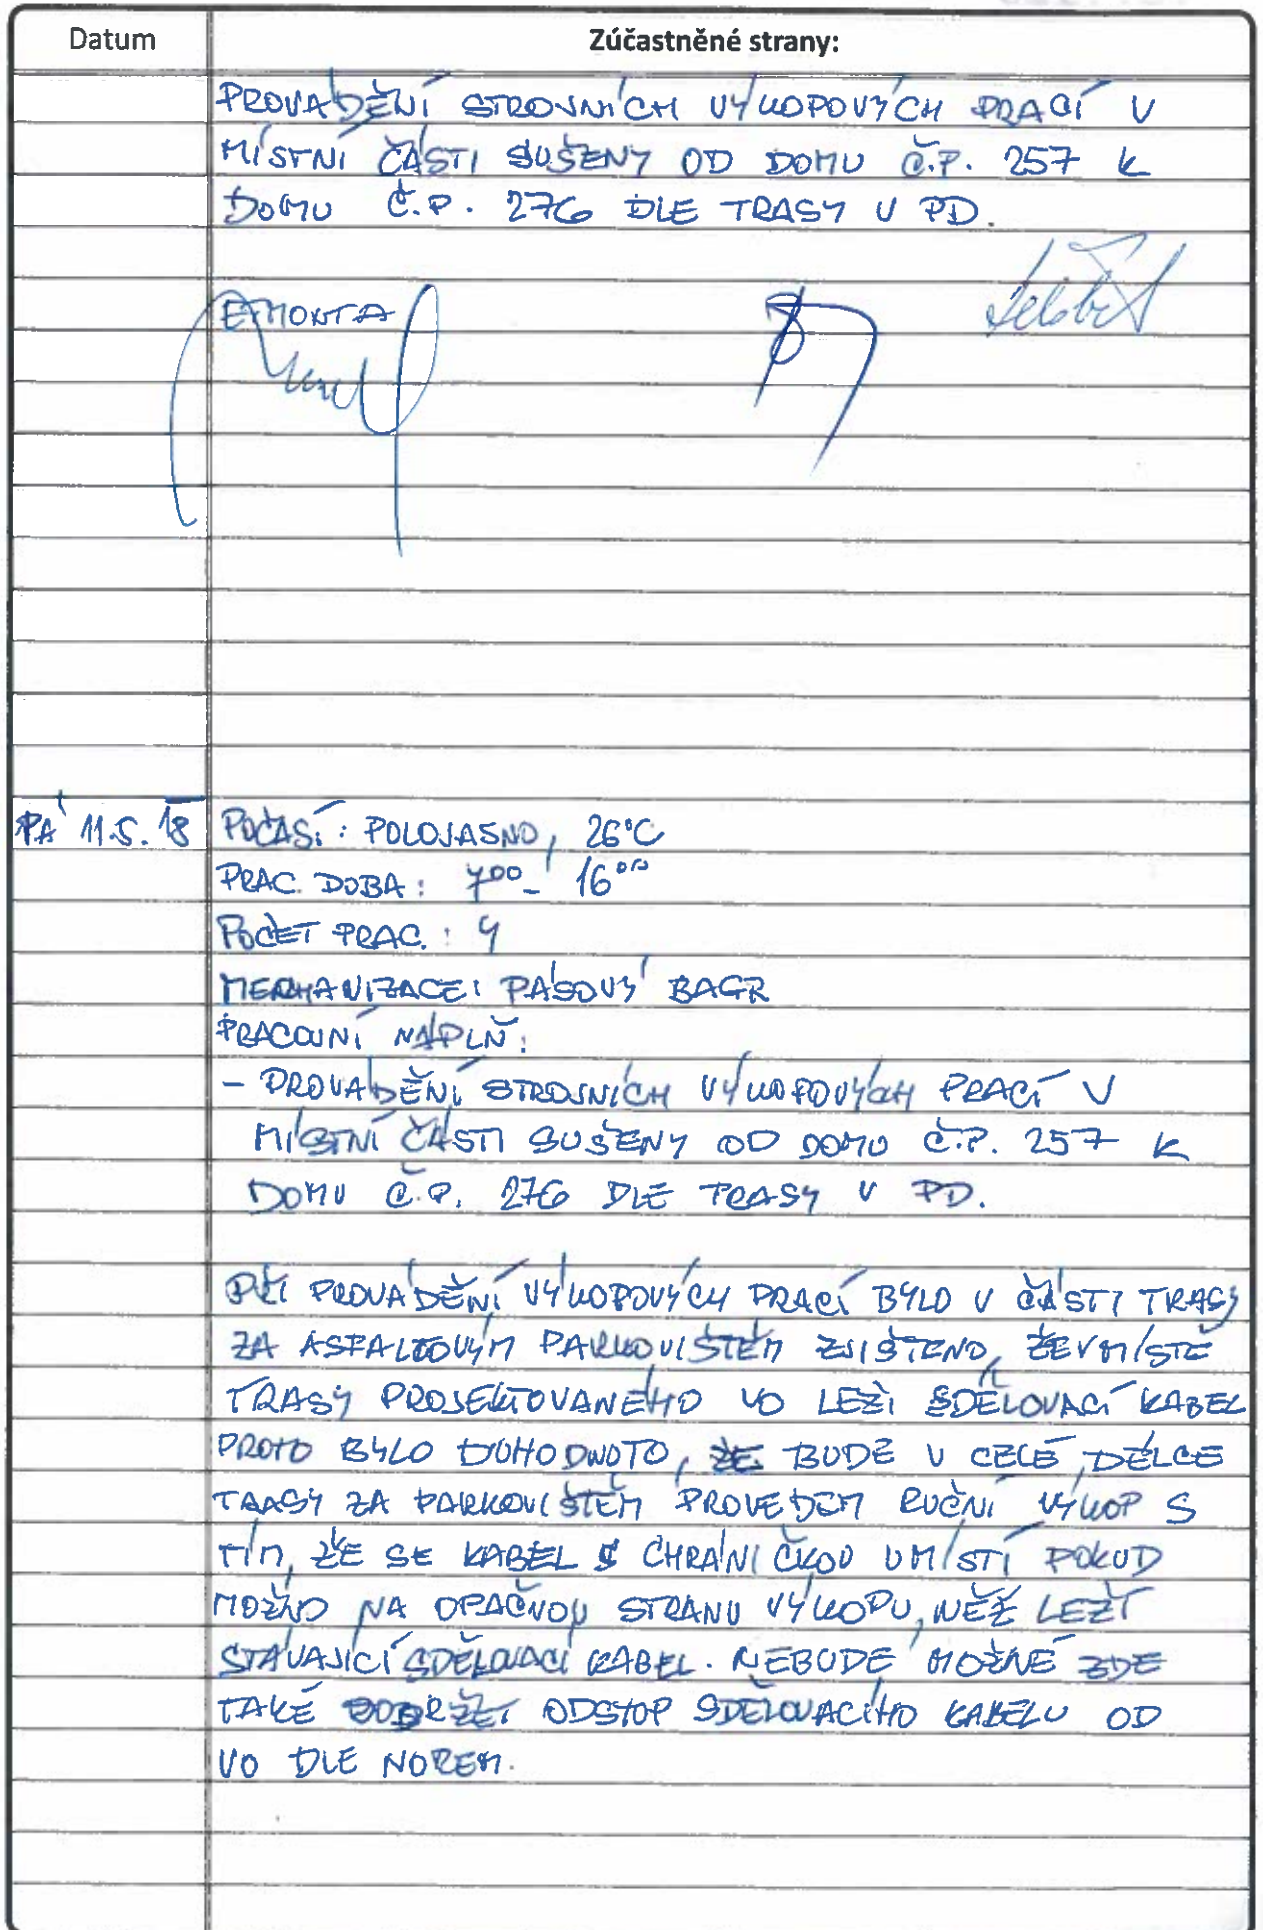 Datum
Zúčastněné strany:
PROVÁDĚNÍ STROJNÍCH VÝKOPOVÝCH PRACÍ V
MÍSTNÍ ČÁSTI SUŠENY OD DOMU Č.P. 257 K
DOMU Č.P. 276 DLE TRASY V PD.
ETMONTA
PÁ 11.5.18 POČASÍ: POLOJASNO, 26°C
PRAC. DOBA: 7⁰⁰ - 16⁰⁰
POČET PRAC.: 4
MECHANIZACE: PÁSOVÝ BAGR
PRACOVNÍ NÁPLŇ:
- PROVÁDĚNÍ STROJNÍCH VÝKOPOVÝCH PRACÍ V
MÍSTNÍ ČÁSTI SUŠENY OD DOMU Č.P. 257 K
DOMU Č.P. 276 DLE TRASY V PD.
PŘI PROVÁDĚNÍ VÝKOPOVÝCH PRACÍ BYLO V ČÁSTI TRASY
ZA ASFALTOVÝM PARKOVIŠTĚM ZJIŠTĚNO, ŽE V MÍSTĚ
TRASY PROJEKTOVANÉHO VO LEŽÍ SDĚLOVACÍ KABEL
PROTO BYLO DOHODNUTO, ŽE BUDE V CELÉ DÉLCE
TRASY ZA PARKOVIŠTĚM PROVEDEN RUČNÍ VÝKOP S
TÍM, ŽE SE KABEL S CHRÁNIČKOU UMÍSTÍ POKUD
MOŽNO NA OPAČNOU STRANU VÝKOPU, NĚŽ LEŽÍ
STÁVAJÍCÍ SDĚLOVACÍ KABEL. NEBUDE MOŽNÉ ZDE
TAKÉ DODRŽET ODSTOP SDĚLOVACÍHO KABELU OD
VO DLE NOREM.